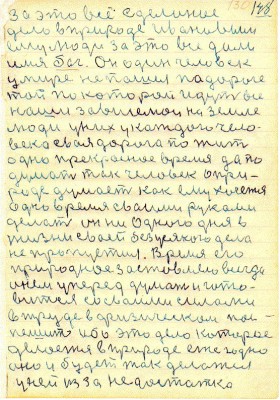 130 148
за это всё сделаное
дело в природе Ивановым
ему люди за это все дали
имя Бог. Он один человек
у мире не пошел по дороге
той по которой идут все
наши за битемой на земле
люди у них у каждого чело-
века своя дорога пожить
одно прекрасное время да по
думать так человек о при-
роде думает как ему хочется
Одно время своими руками
делать он ни одного дня в
жизни своей без усякого дела
не пропустил. Время его
природное заставляло всегда
о нем уперед думать и гото-
вится со своими силами
в труде в физическом пос-
пешит ибо это дело которое
делается в природе ежегодно
оно и будет так делатся
у ней из за недостатка